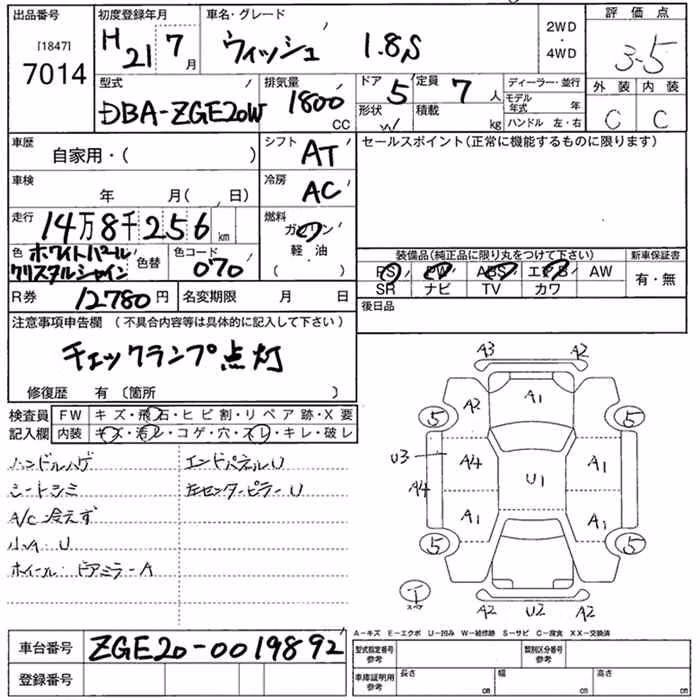 出品番号
[1847]
7014
初度登録年月
H 21 7 月
車名・グレード
ウィッシュ 1.8S
2WD
・
4WD
評価点
3.5
外装 内装
C C
型式
DBA-ZGE20W
排気量
1800 CC
ドア 5
形状 W
定員 7 人
積載 kg
ディーラー・並行
モデル年式 年
ハンドル 左・右
車歴
自家用・( )
シフト
AT
車検
年 月( , 日)
冷房
AC
走行
14万8千256 km
燃料
ガソリン
軽油
( )
色 ホワイトパール
クリスタルシャイン
色替
色コード
070
R券 12780 円
名変期限 月 日
セールスポイント(正常に機能するものに限ります)
装備品(純正品に限り丸をつけて下さい)
PS PW ABS エアB AW
SR ナビ TV カワ
新車保証書
有・無
後日品
注意事項申告欄 (不具合内容等は具体的に記入して下さい)
チェックランプ点灯
修復歴 有 〔箇所 〕
検査員
記入欄
FW キズ・飛石・ヒビ割・リペア跡・X要
内装 キズ・汚レ・コゲ・穴・スレ・キレ・破レ
ハンドルハゲ
シートシミ
A/C 冷えず
小A・U
ホイール・ドアミラーA
エンドパネルU
左センターピラーU
A3 A2
A2 A1
5 5
U3 A4 U1 A1
A4
A1 A1
5 5
T
スペア
A2 U2 A2
A―キズ E―エクボ U―凹み W―補修跡 S―サビ C―腐食 XX―交換済
車台番号
ZGE20-0019892
登録番号
型式指定番号
参考
類別区分番号
参考
車庫証明用
参考
長さ cm
幅 cm
高さ cm